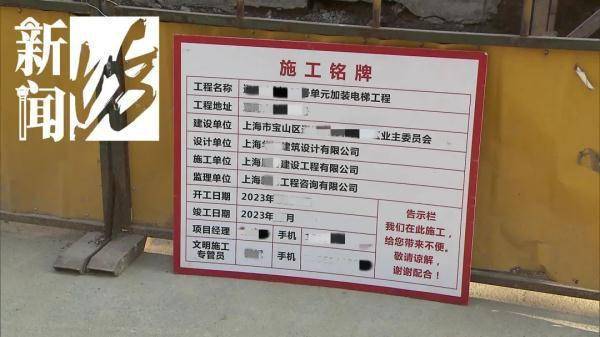 新闻
施工铭牌
工程名称 单元加装电梯工程
工程地址
建设单位 上海市宝山区 业主委员会
设计单位 上海 建筑设计有限公司
施工单位 上海 建设工程有限公司
监理单位 上海 工程咨询有限公司
开工日期 2023年
竣工日期 2023年 月
项目经理 手机
文明施工
专管员 手机
告示栏
我们在此施工,
给您带来不便。
敬请谅解,
谢谢配合!